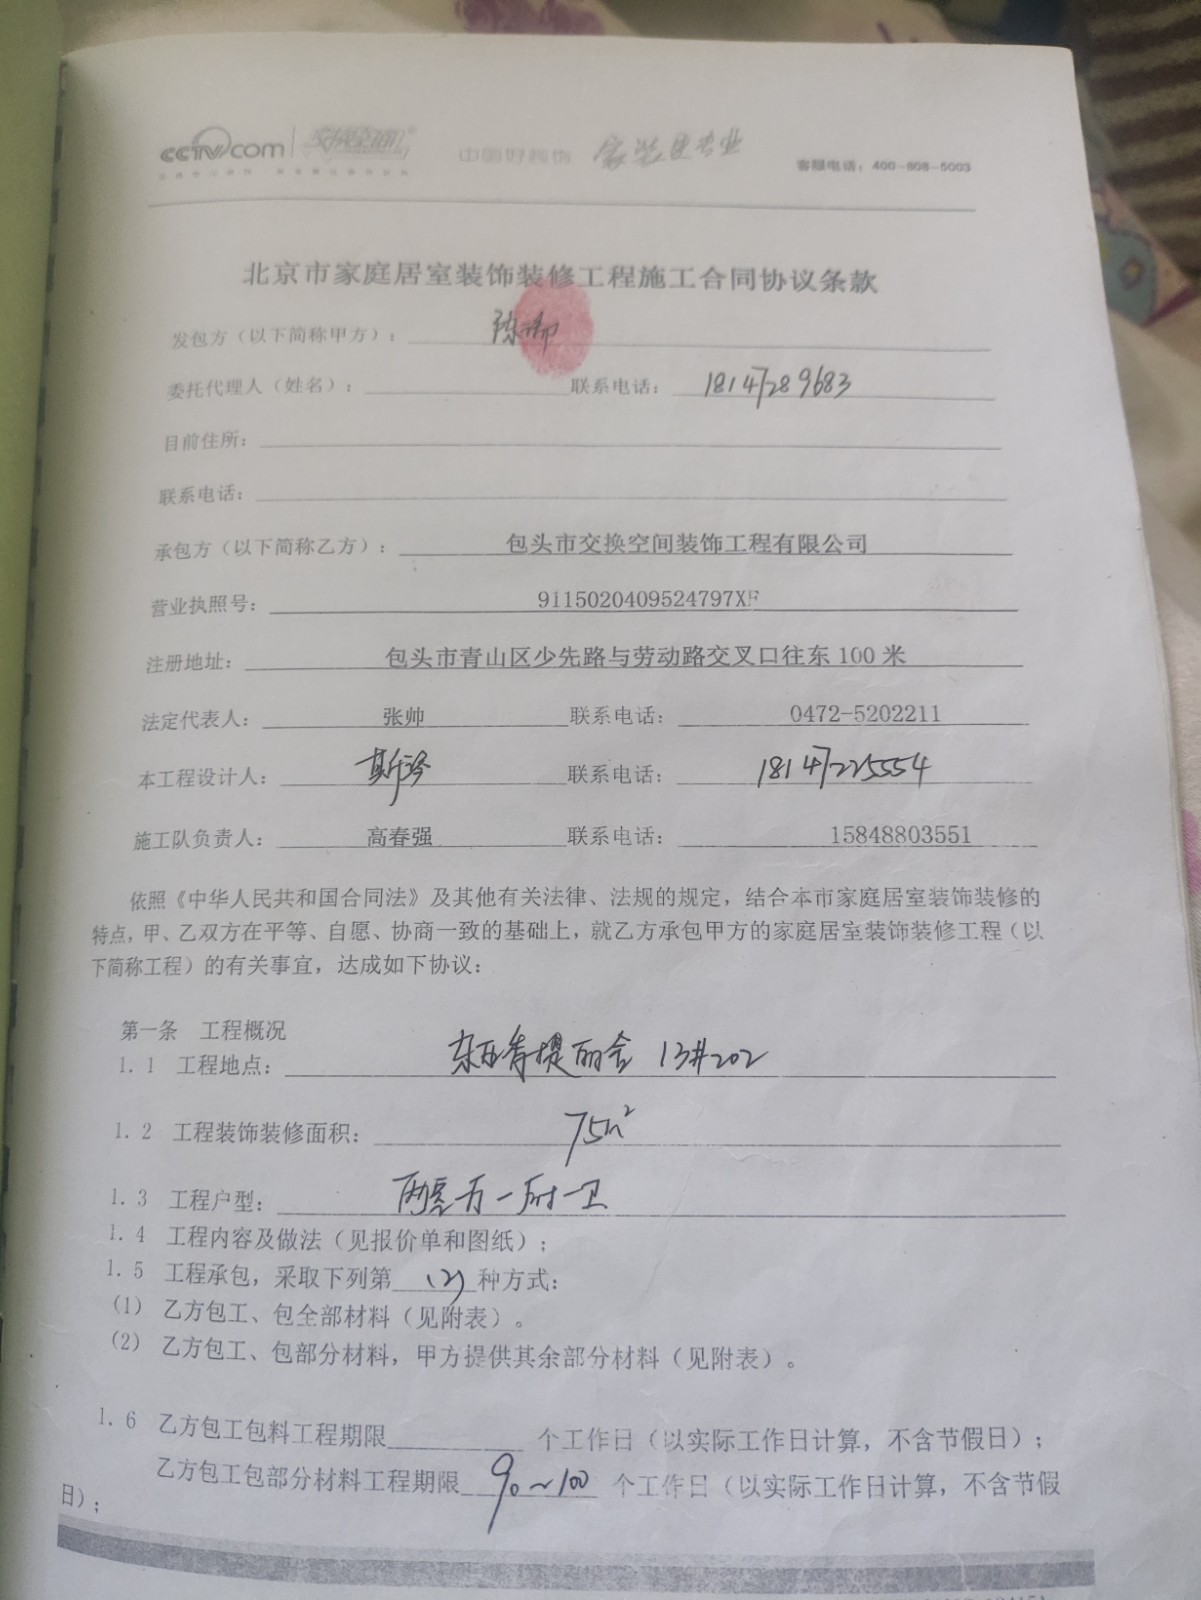 CCTV.com 交换空间
中国好装饰 家装更专业
客服电话：400-808-5003
北京市家庭居室装饰装修工程施工合同协议条款
发包方（以下简称甲方）：
委托代理人（姓名）： 联系电话： 18147289683
目前住所：
联系电话：
承包方（以下简称乙方）： 包头市交换空间装饰工程有限公司
营业执照号： 9115020409524797XF
注册地址： 包头市青山区少先路与劳动路交叉口往东 100 米
法定代表人： 张帅 联系电话： 0472-5202211
本工程设计人： 联系电话： 18147225554
施工队负责人： 高春强 联系电话： 15848803551
依照《中华人民共和国合同法》及其他有关法律、法规的规定，结合本市家庭居室装饰装修的
特点，甲、乙双方在平等、自愿、协商一致的基础上，就乙方承包甲方的家庭居室装饰装修工程（以
下简称工程）的有关事宜，达成如下协议：
第一条 工程概况
1.1 工程地点： 香提丽舍 13#202
1.2 工程装饰装修面积： 75m²
1.3 工程户型： 两室一厅一卫
1.4 工程内容及做法（见报价单和图纸）；
1.5 工程承包，采取下列第 (2) 种方式：
(1) 乙方包工、包全部材料（见附表）。
(2) 乙方包工、包部分材料，甲方提供其余部分材料（见附表）。
1.6 乙方包工包料工程期限 个工作日（以实际工作日计算，不含节假日）；
乙方包工包部分材料工程期限 90~100 个工作日（以实际工作日计算，不含节假
日）；